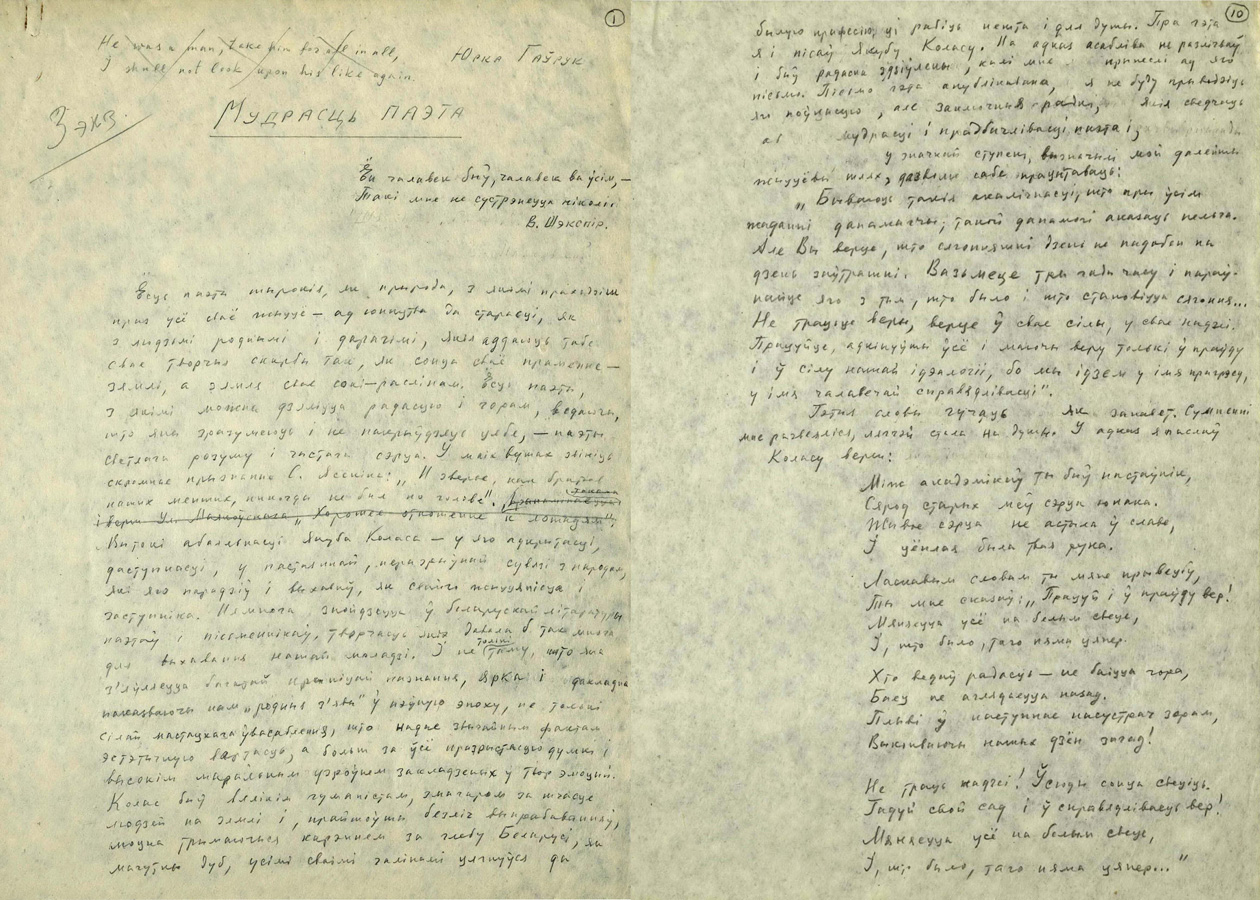 1
He was a man, take him for all in all,
I shall not look upon his like again.
Юрка Гаўрук
3 экз
Мудрасць паэта
Ён чалавек быў, чалавек ва ўсім, —
Такі мне не сустрэнецца ніколі
В. Шэкспір.
Ёсць паэты шырокія, як прырода, з якімі праходзіш
праз усё сваё жыццё — ад юнацтва да старасці, як
з людзьмі роднымі і дарагімі, якія аддаюць табе
свае творчыя скарбы так, як сонца сваё праменне —
зямлі, а зямля свае сокі — раслінам. Ёсць паэты,
з якімі можна дзяліцца радасцю і горам, ведаючы,
што яны зразумеюць і не пакрыўдзяць цябе, — паэты
светлага розуму і чыстага сэрца. У маіх вушах звініць
скромнае прызнанне С. Ясеніна: „И зверье, как братьев
наших меньших, никогда не бил по голове".
і верш Ул. Маякоўскага „Хорошее отношение к лошадям".
Вытокі абаяльнасці Якуба Коласа — у яго адкрытасці,
даступнасці, у пастаяннай, неразрыўнай сувязі з народам,
які яго нарадзіў і выхаваў, як свайго жыццяпісца і
заступніка. Нямнога знойдзецца ў беларускай літаратуры
паэтаў і пісьменнікаў, творчасць якіх давала б так многа
для выхавання нашай моладзі. І не толькі таму, што яна
з'яўляецца багатай крыніцай пазнання, ярка і дакладна
паказваючы нам „родныя з'явы" ў пэўную эпоху, не толькі
сілай мастацкага ўвасаблення, што надае звычайным фактам
эстэтычную вартасць, а больш за ўсё празрыстасцю думкі і
высокім маральным узроўнем закладзеных у твор эмоцый.
Колас быў вялікім гуманістам, змагаром за шчасце
людзей на зямлі і, прайшоўшы безліч выпрабаванняў,
моцна трымаючыся карэннем за глебу Беларусі, як
магутны дуб, усімі сваімі галінамі цягнуўся да
10
былую прафесію, ці рабіць нешта і для душы. Пра гэта
я і пісаў Якубу Коласу. На адказ асабліва не разлічваў
і быў радасна здзіўлены, калі мне прынеслі ад яго
пісьмо. Пісьмо гэта апублікавана, я не буду прыводзіць
яго поўнасцю, але заключныя радкі, якія сведчаць
аб мудрасці і прадбачлівасці паэта і,
у значнай ступені, вызначылі мой далейшы
жыццёвы шлях, дазволю сабе працытаваць:
„Бываюць такія акалічнасці, што пры ўсім
жаданні дапамагчы, такой дапамогі аказаць нельга.
Але Вы верце, што сягонняшні дзень не падобен на
дзень заўтрашні. Вазьмеце тры гады часу і параў-
найце яго з тым, што было і што становіцца сягоння...
Не трацьце веры, верце ў свае сілы, у свае надзеі.
Працуйце, адкінуўшы ўсё і маючы веру толькі ў праўду
і ў сілу нашай ідэалогіі, бо мы ідзем у імя прагрэсу,
у імя чалавечай справядлівасці".
Гэтыя словы гучаць як запавет. Сумненні
мае развеяліся, лягчэй стала на душы. У адказ я паслаў
Коласу верш:
Між акадэмікаў ты быў настаўнік,
Сярод старых меў сэрца юнака.
Жывое сэрца не астыла ў славе,
І цёплая была твая рука.
Ласкавым словам ты мяне прывеціў,
Ты мне сказаў: „Працуй і ў праўду вер!
Мяняецца усё на белым свеце,
І, што было, таго няма цяпер.
Хто ведаў радасць — не баіцца гора,
Баец не аглядаецца назад.
Плыві ў наступнае насустрач зорам,
Выконваючы нашых дзён загад!
Не траць надзеі! Ўсюды сонца свеціць.
Гадуй свой сад і ў справядлівасць вер!
Мяняецца усё на белым свеце,
І, што было, таго няма цяпер..."